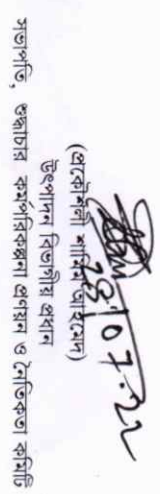 28/07.22
(প্রকৌশলী শামিম আহমেদ)
উৎপাদন বিভাগীয় প্রধান
সভাপতি, শুদ্ধাচার কর্মপরিকল্পনা প্রণয়ন ও নৈতিকতা কমিটি